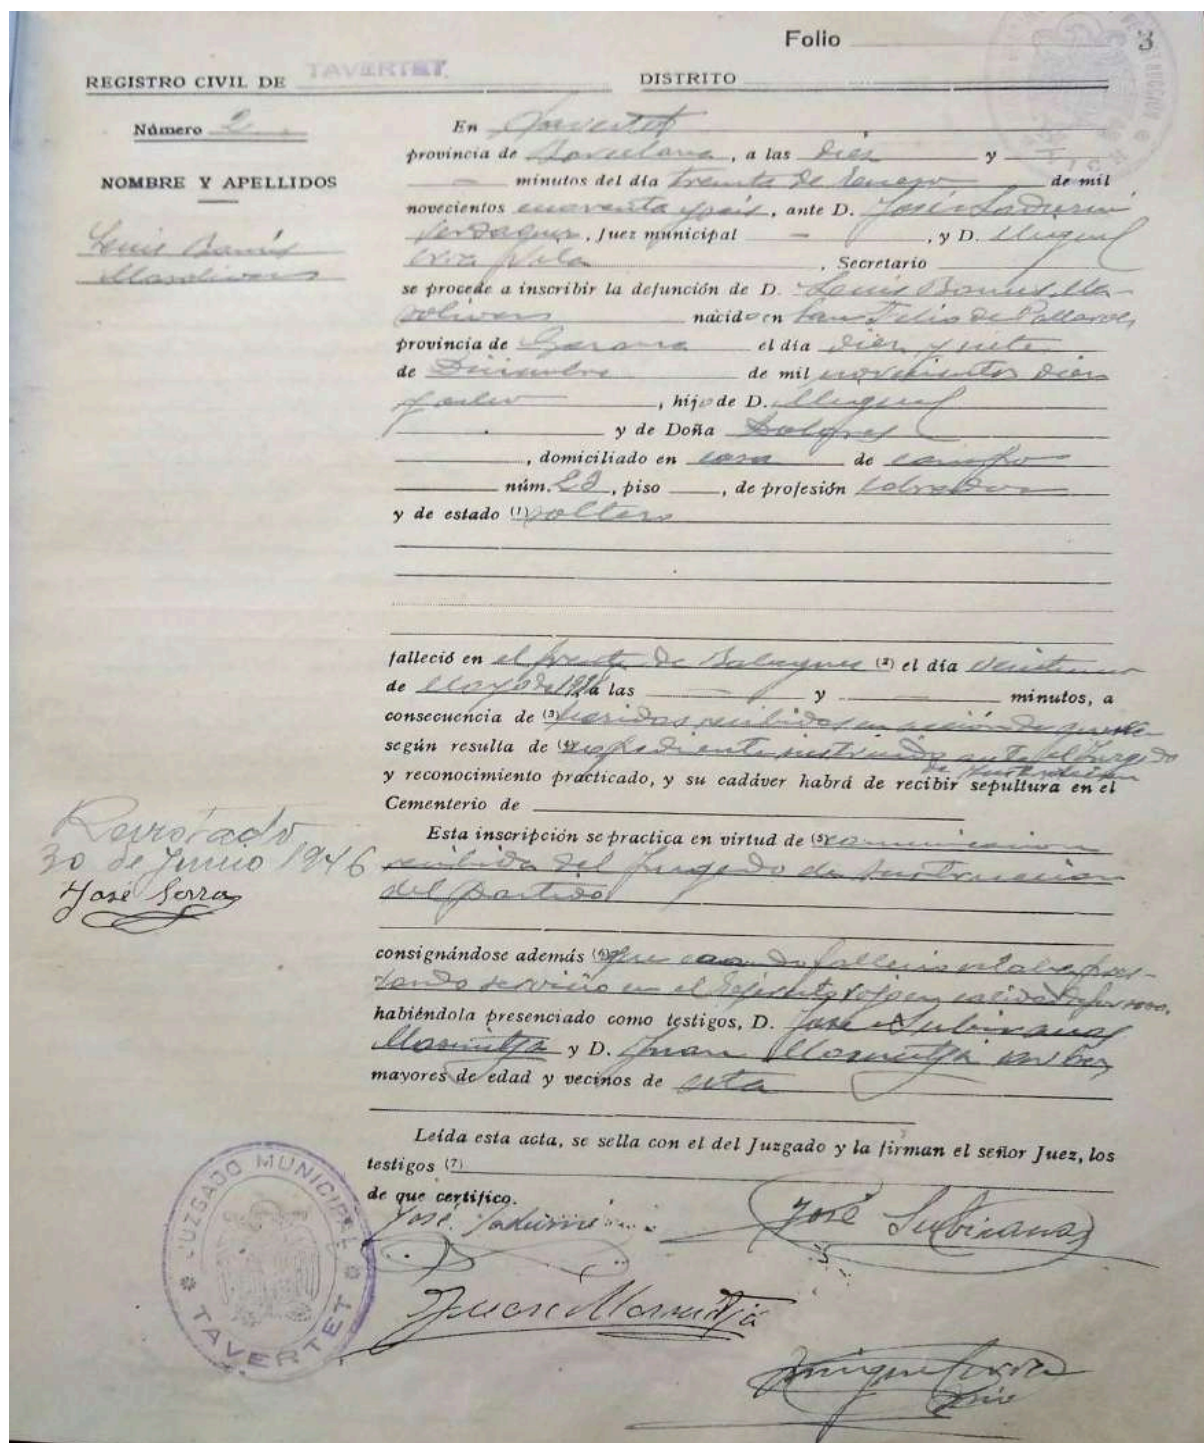 Folio 3
REGISTRO CIVIL DE TAVERTET DISTRITO
Número 2
NOMBRE Y APELLIDOS
Luis Banús
Masolivers
En Tavertet
provincia de Barcelona, a las diez y
minutos del día treinta de Enero de mil
novecientos cuarenta y seis, ante D. José Sadurní
Verdaguer, Juez municipal , y D. Miquel
Vila , Secretario
se procede a inscribir la defunción de D. Luis Banus Ma-
solivers nacido en San Feliu de Pallarols
provincia de Gerona el día diez y siete
de Diciembre de mil novecientos diez
y ocho , hijo de D. Miguel
y de Doña Dolores
, domiciliado en casa de campo
núm. 23, piso , de profesión labrador
y de estado (1) soltero
falleció en el frente de Balaguer (2) el día
de Mayo de a las y minutos, a
consecuencia de (3) heridas recibidas en acción de guerra
según resulta de (4) expediente instruido ante el Juzgado
de Instrucción
y reconocimiento practicado, y su cadáver habrá de recibir sepultura en el
Cementerio de
Esta inscripción se practica en virtud de (5) comunicación
recibida del Juzgado de Instrucción
del partido
consignándose además (6) que cuando falleció estaba pres-
tando servicio en el Ejército rojo en calidad de forzoso.
habiéndola presenciado como testigos, D. José Subiranas
Masmitjà y D. Juan Masmitjà
mayores de edad y vecinos de esta
Leída esta acta, se sella con el del Juzgado y la firman el señor Juez, los
testigos (7)
de que certifico.
José Sadurní
José Subiranas
Juan Masmitjà
30 de Junio 1946
José Serra
JUZGADO MUNICIPAL
TAVERTET